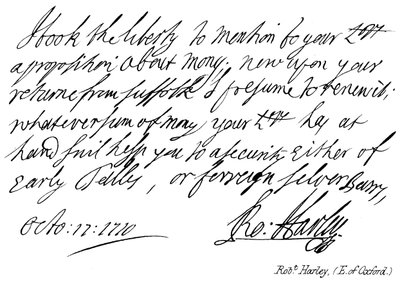 I took the liberty to mention to your Lopp
a proposition about mony; now upon your
returne from Suffolk I presume to renew it;
whatever sum of mony your Lopp has at
hand I wil help you to a security either of
Early Tallies, or forreign silver Barrs,
Octo: 17: 1710
Ro: Harley.
Robt. Harley, (E. of Oxford.)